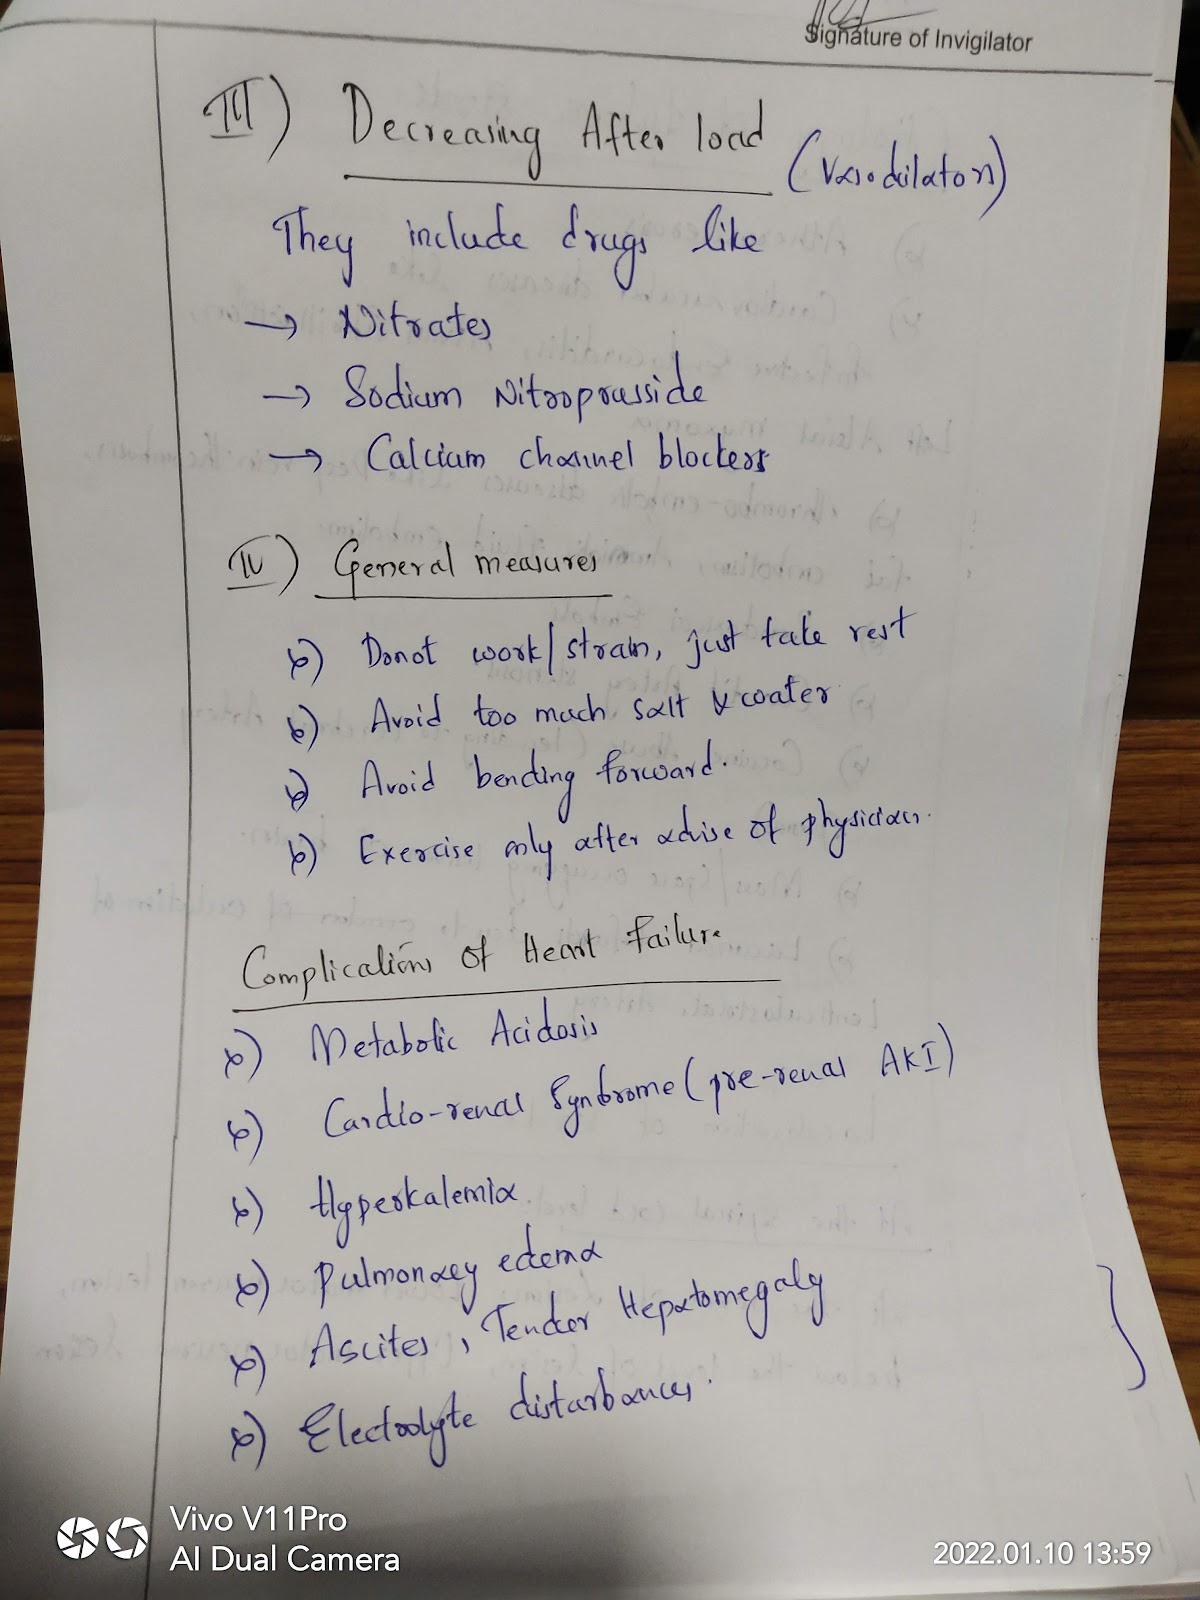 Signature of Invigilator
III) Decreasing After load (Vasodilators)
They include drugs like
→ Nitrates
→ Sodium Nitroprusside
→ Calcium channel blockers
IV) General measures
Donot work/strain, just take rest
Avoid too much salt & water
Avoid bending forward.
Exercise only after advise of physician.
Complications of Heart Failure
Metabolic Acidosis
Cardio-renal Syndrome (pre-renal AKI)
Hyperkalemia
Pulmonary edema
Ascites, Tender Hepatomegaly
Electrolyte disturbances.
Vivo V11Pro
AI Dual Camera
2022.01.10 13:59